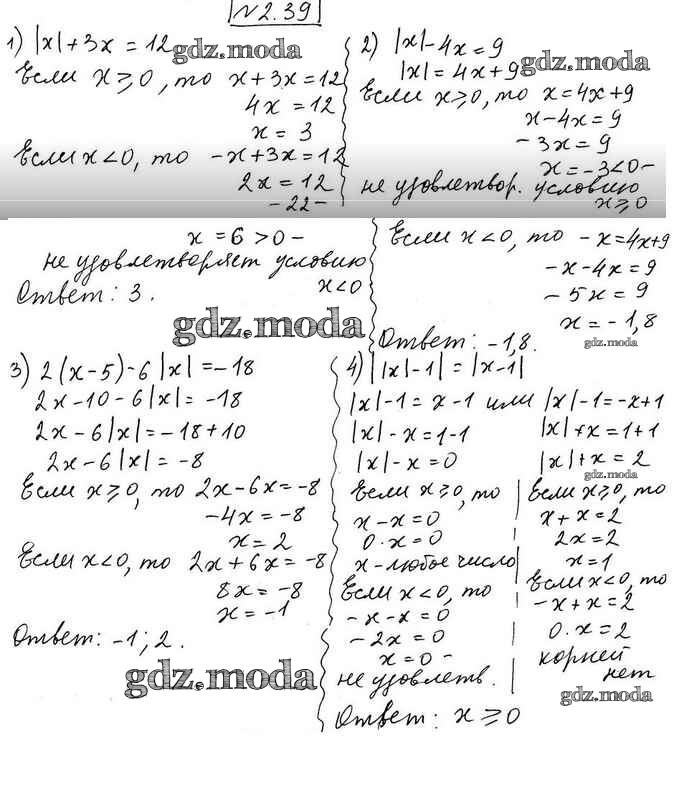 №2.39
1) |x|+3x=12
gdz.moda
Если x⩾0, то x+3x=12
4x=12
x=3
Если x<0, то -x+3x=12
2x=12
-22-
x=6>0-
не удовлетворяет условию
x<0
Ответ: 3.
2) |x|-4x=9
|x|=4x+9
gdz.moda
Если x⩾0, то x=4x+9
x-4x=9
-3x=9
x=-3<0-
не удовлетвор. условию
x⩾0
Если x<0, то -x=4x+9
-x-4x=9
-5x=9
x=-1,8
Ответ: -1,8.
gdz.moda
gdz.moda
3) 2(x-5)-6|x|=-18
2x-10-6|x|=-18
2x-6|x|=-18+10
2x-6|x|=-8
Если x⩾0, то 2x-6x=-8
-4x=-8
x=2
Если x<0, то 2x+6x=-8
8x=-8
x=-1
Ответ: -1; 2.
gdz.moda
4) ||x|-1|=|x-1|
|x|-1=x-1 или |x|-1=-x+1
|x|-x=1-1
|x|-x=0
Если x⩾0, то
x-x=0
0·x=0
x-любое число
Если x<0, то
-x-x=0
-2x=0
x=0-
не удовлетв.
|x|+x=1+1
|x|+x=2
gdz.moda
Если x⩾0, то
x+x=2
2x=2
x=1
Если x<0, то
-x+x=2
0·x=2
корней
нет
gdz.moda
Ответ: x⩾0